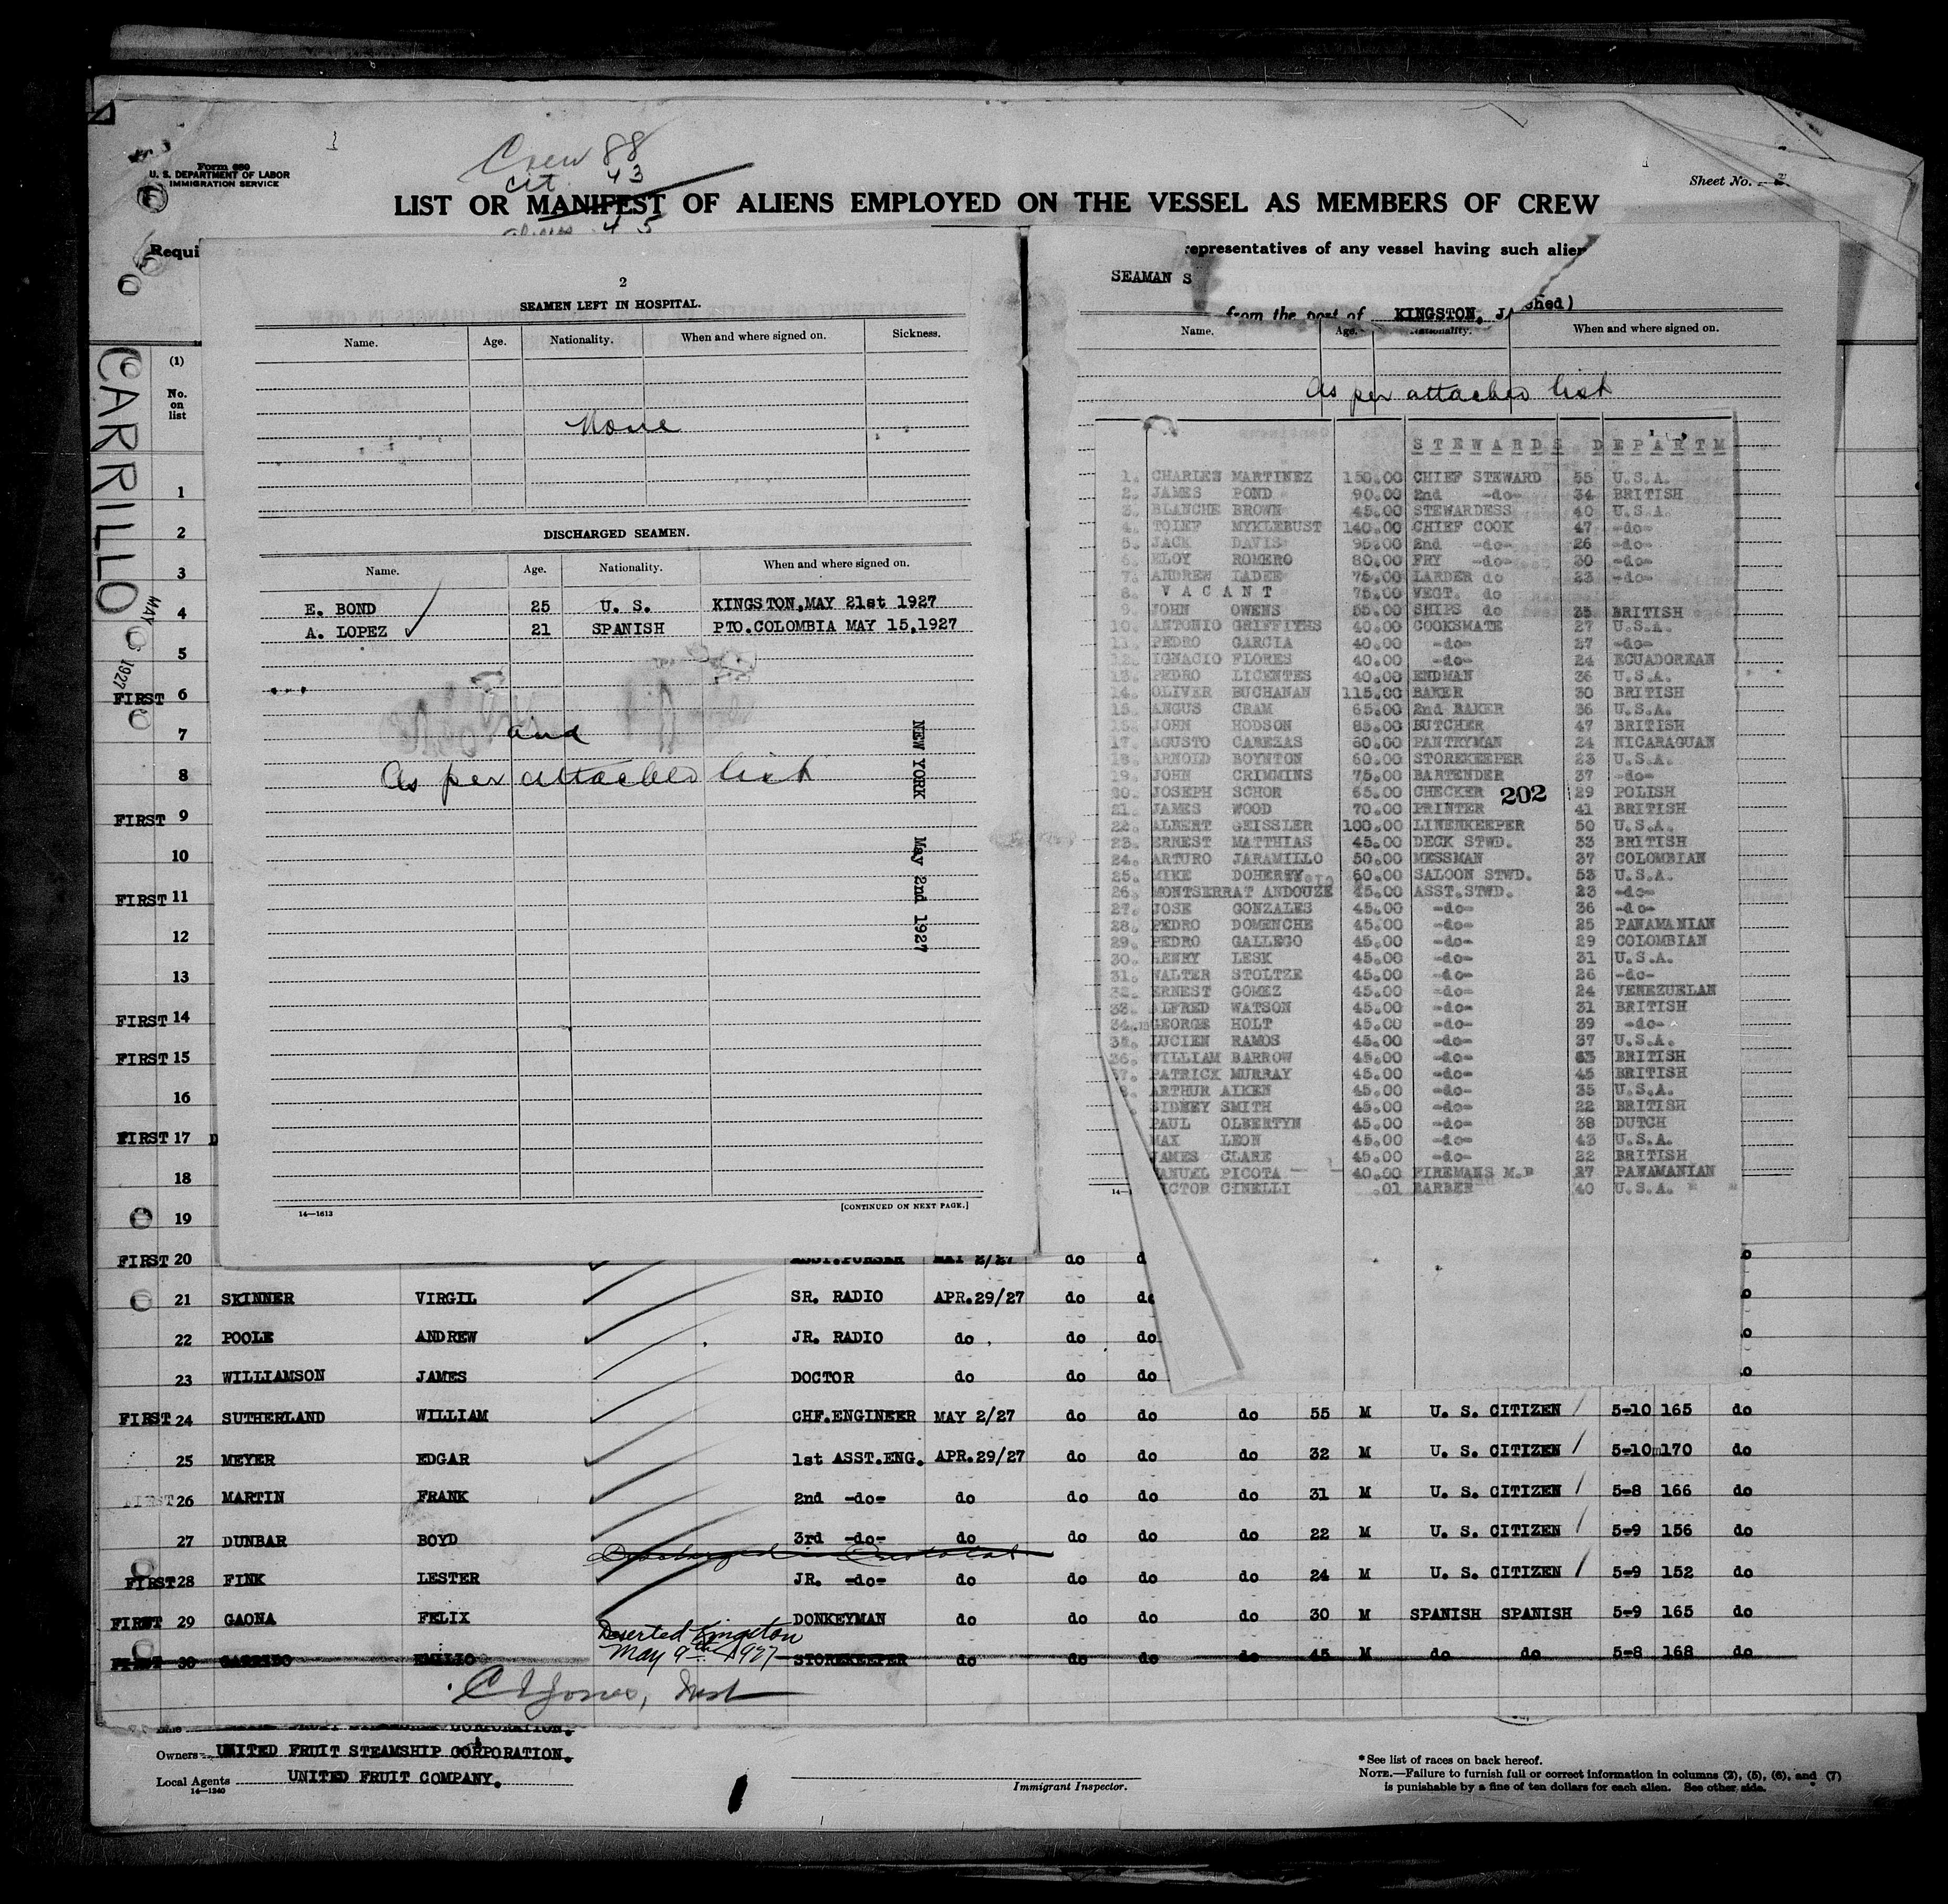 Crew 88
cit 43
Form 680
U. S. DEPARTMENT OF LABOR
IMMIGRATION SERVICE
Sheet No.
LIST OR MANIFEST OF ALIENS EMPLOYED ON THE VESSEL AS MEMBERS OF CREW
aliens 45
Requi
CARRILLO
MAY 1927
(1)
No. on list
1
2
3
4
5
FIRST 6
7
8
FIRST 9
10
FIRST 11
12
13
FIRST 14
FIRST 15
16
FIRST 17
18
19
2
SEAMEN LEFT IN HOSPITAL.
Name. Age. Nationality. When and where signed on. Sickness.
None
DISCHARGED SEAMEN.
Name. Age. Nationality. When and where signed on.
E. BOND 25 U. S. KINGSTON,MAY 21st 1927
A. LOPEZ 21 SPANISH PTO.COLOMBIA MAY 15,1927
and
As per attached list
NEW YORK May 2nd 1927
14—1613 [CONTINUED ON NEXT PAGE.]
representatives of any vessel having such alien
SEAMAN S
shed)
from the port of KINGSTON, JA
Name. Age. Nationality. When and where signed on.
As per attached list
STEWARDS DEPARTM
1. CHARLES MARTINEZ 150.00 CHIEF STEWARD 55 U.S.A.
2. JAMES POND 90.00 2nd -do- 34 BRITISH
3. BLANCHE BROWN 45.00 STEWARDESS 40 U.S.A.
4. TOIEF MYKLEBUST 140.00 CHIEF COOK 47 -do-
5. JACK DAVIS 95.00 2nd -do- 26 -do-
6. ELOY ROMERO 80.00 FRY -do- 30 -do-
7. ANDREW LADEE 75.00 LARDER do 23 -do-
8. VACANT 75.00 VEGT. do
9. JOHN OWENS 55.00 SHIPS do 35 BRITISH
10. ANTONIO GRIFFITHS 40.00 COOKSMATE 27 U.S.A.
11. PEDRO GARCIA 40.00 -do- 27 -do-
12. IGNACIO FLORES 40.00 -do- 24 ECUADOREAN
13. PEDRO LICENTES 40.00 ENDMAN 36 U.S.A.
14. OLIVER BUCHANAN 115.00 BAKER 30 BRITISH
15. ANGUS CRAM 65.00 2nd BAKER 36 U.S.A.
16. JOHN HODSON 85.00 BUTCHER 47 BRITISH
17. AGUSTO CABEZAS 60.00 PANTRYMAN 24 NICARAGUAN
18. ARNOLD BOYNTON 60.00 STOREKEEPER 23 U.S.A.
19. JOHN CRIMMINS 75.00 BARTENDER 37 -do-
20. JOSEPH SCHOR 65.00 CHECKER 202 29 POLISH
21. JAMES WOOD 70.00 PRINTER 41 BRITISH
22. ALBERT GEISSLER 100.00 LINENKEEPER 50 U.S.A.
23. ERNEST MATTHIAS 45.00 DECK STWD. 33 BRITISH
24. ARTURO JARAMILLO 50.00 MESSMAN 37 COLOMBIAN
25. MIKE DOHERTY 60.00 SALOON STWD. 53 U.S.A.
26. MONTSERRAT ANDOUZE 45.00 ASST.STWD. 23 -do-
27. JOSE GONZALES 45.00 -do- 36 -do-
28. PEDRO DOMENCHE 45.00 -do- 25 PANAMANIAN
29. PEDRO GALLEGO 45.00 -do- 29 COLOMBIAN
30. HENRY LESK 45.00 -do- 31 U.S.A.
31. WALTER STOLTZE 45.00 -do- 26 -do-
32. ERNEST GOMEZ 45.00 -do- 24 VENEZUELAN
33. ALFRED WATSON 45.00 -do- 31 BRITISH
34. GEORGE HOLT 45.00 -do- 39 -do-
35. LUCIEN RAMOS 45.00 -do- 37 U.S.A.
36. WILLIAM BARROW 45.00 -do- BRITISH
37. PATRICK MURRAY 45.00 -do- 45 BRITISH
ARTHUR AIKEN 45.00 -do- 35 U.S.A.
SIDNEY SMITH 45.00 -do- 22 BRITISH
PAUL OLBERTYN 45.00 -do- 38 DUTCH
MAX LEON 45.00 -do- 43 U.S.A.
JAMES CLARE 45.00 -do- 22 BRITISH
ANUEL PICOTA 40.00 FIREMANS M. 27 PANAMANIAN
ICTOR CINELLI .01 BARBER 40 U.S.A.
FIRST 20 ASST.PURSER MAY 2/27 do
21 SKINNER VIRGIL SR. RADIO APR.29/27 do do
22 POOLE ANDREW JR. RADIO do do do
23 WILLIAMSON JAMES DOCTOR do do do
FIRST 24 SUTHERLAND WILLIAM CHF.ENGINEER MAY 2/27 do do do 55 M U. S. CITIZEN 5-10 165 do
25 MEYER EDGAR 1st ASST.ENG. APR.29/27 do do do 32 M U. S. CITIZEN 5-10 170 do
FIRST 26 MARTIN FRANK 2nd -do- do do do do 31 M U. S. CITIZEN 5-8 166 do
27 DUNBAR BOYD 3rd -do- do do do do 22 M U. S. CITIZEN 5-9 156 do
Discharged in Cristobal
FIRST 28 FINK LESTER JR. -do- do do do do 24 M U. S. CITIZEN 5-9 152 do
FIRST 29 GAONA FELIX DONKEYMAN do do do do 30 M SPANISH SPANISH 5-9 165 do
Deserted Kingston
May 9th 1927
FIRST 30 GARRIDO EMILIO STOREKEEPER do do do do 45 M do do 5-8 168 do
C I Jones, Inst
FRUIT STEAMSHIP CORPORATION.
Owners UNITED FRUIT STEAMSHIP CORPORATION.
Local Agents UNITED FRUIT COMPANY.
14—1240
Immigrant Inspector.
*See list of races on back hereof.
NOTE.—Failure to furnish full or correct information in columns (2), (5), (6), and (7)
is punishable by a fine of ten dollars for each alien. See other side.